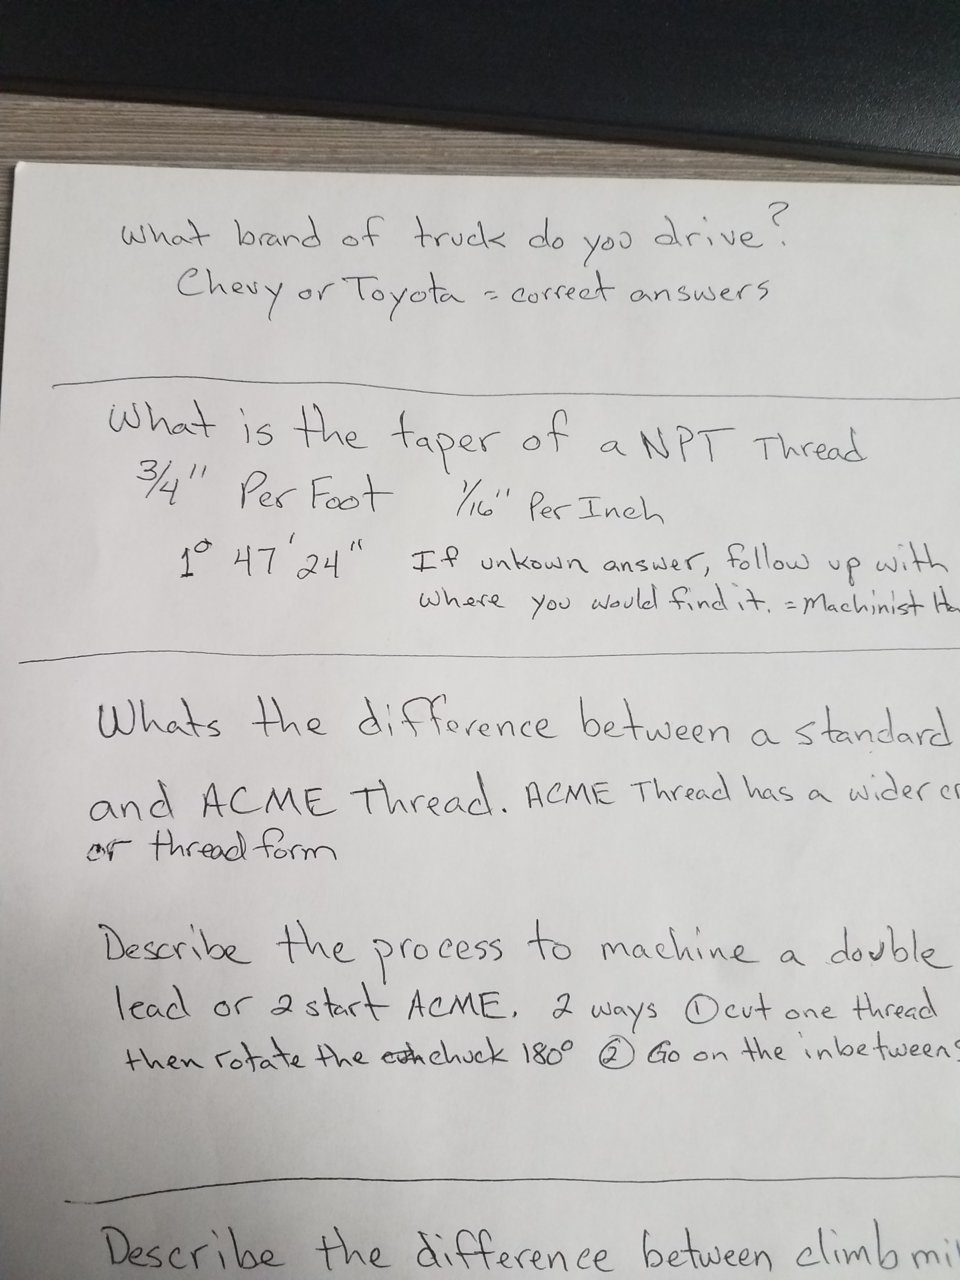 What brand of truck do you drive?
Chevy or Toyota = correct answers
What is the taper of a NPT Thread
3/4" Per Foot 1/16" Per Inch
1° 47' 24" If unkown answer, follow up with
where you would find it. = Machinist
Whats the difference between a standard
and ACME Thread. ACME Thread has a wider
or thread form
Describe the process to machine a double
lead or 2 start ACME. 2 ways ① cut one thread
then rotate the chuck 180° ② Go on the inbetween
Describe the difference between climb